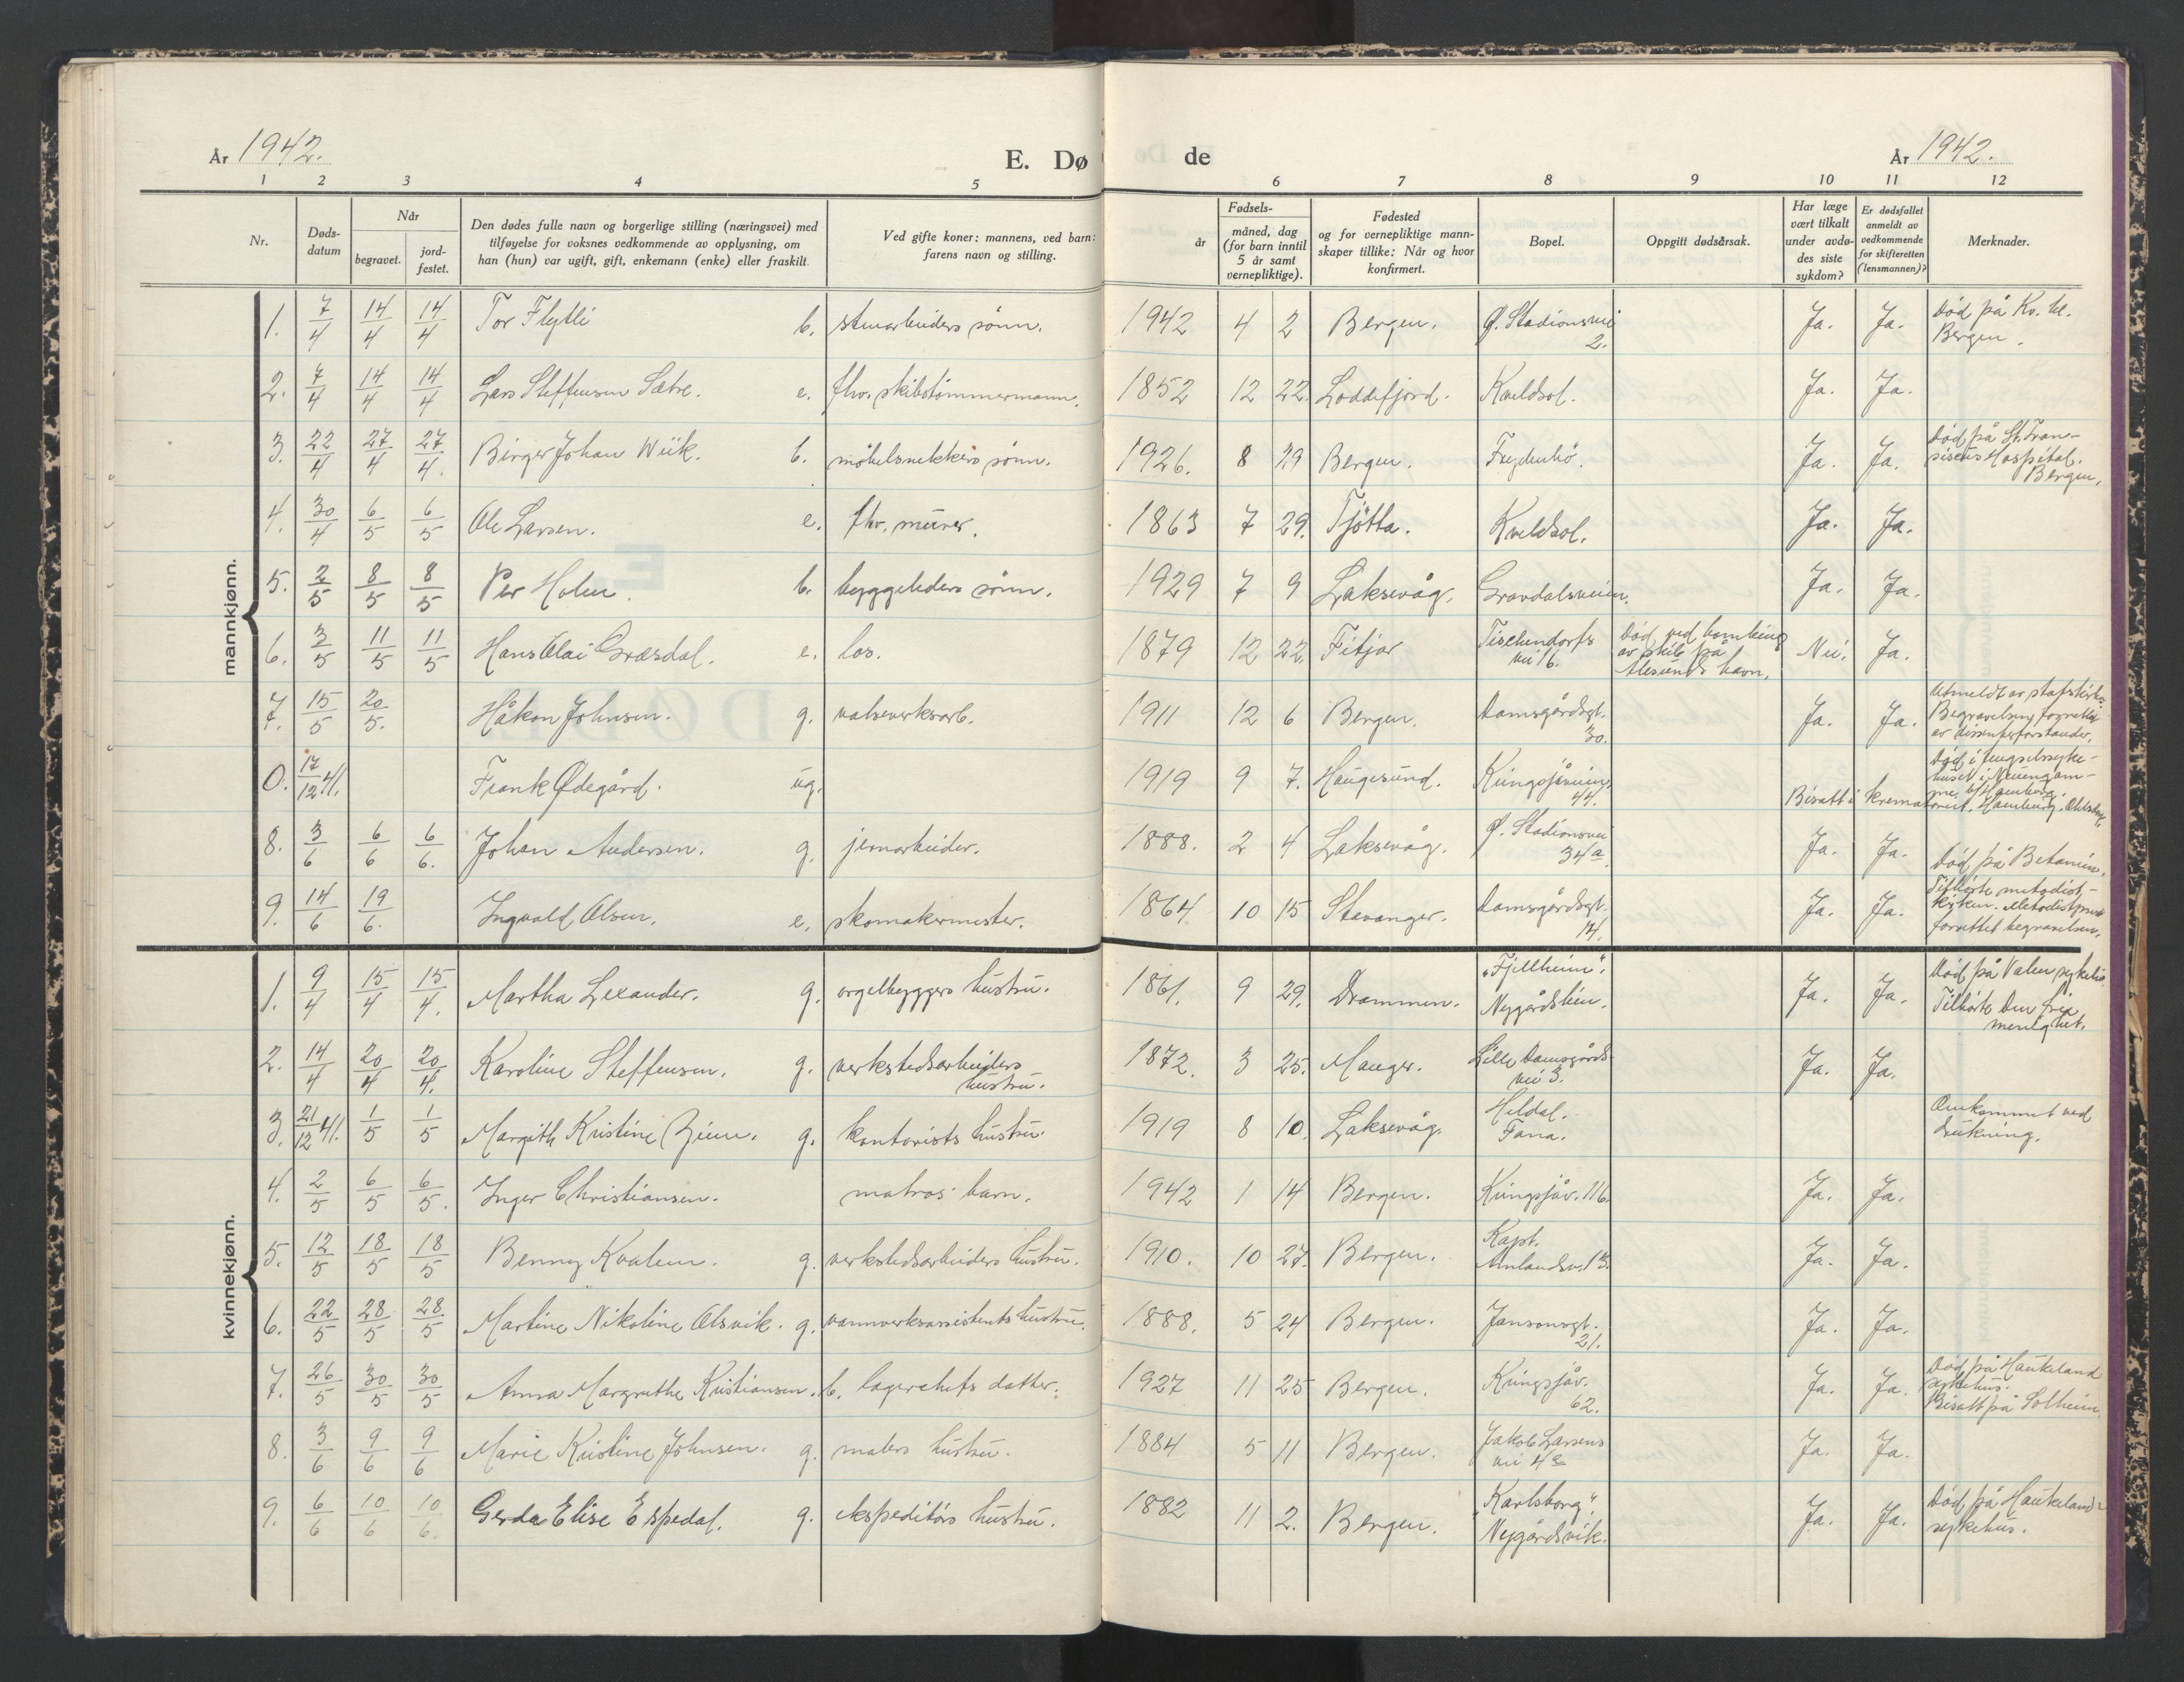 År 1942.
E. Dø de
År 1942.
1 2 3 4 5 6 7 8 9 10 11 12
Nr.
Døds-
datum
Når
begravet.
jord-
festet.
Den dødes fulle navn og borgerlige stilling (næringsvei) med
tilføyelse for voksnes vedkommende av opplysning, om
han (hun) var ugift, gift, enkemann (enke) eller fraskilt.
Ved gifte koner: mannens, ved barn:
farens navn og stilling.
Fødsels-
år
måned, dag
(for barn inntil
5 år samt
vernepliktige).
Fødested
og for vernepliktige mann-
skaper tillike: Når og hvor
konfirmert.
Bopel.
Oppgitt dødsårsak.
Har læge
vært tilkalt
under avdø-
des siste
sykdom?
Er dødsfallet
anmeldt av
vedkommende
for skifteretten
(lensmannen)?
Merknader.
mannkjønn.
1. 7/4 14/4 14/4 Tor Flytli b. stenarbeiders sønn. 1942 4 2 Bergen. Ø. Stadionsvei 2. Ja. Ja. Død på Kv. kl.
Bergen.
2. 7/4 14/4 14/4 Lars Steffensen Sætre. e. fhv. skibstømmermann. 1852 12 22. Loddefjord. Kveldsol. Ja. Ja.
3. 22/4 27/4 27/4. Birger Johan Wiik. b. møbelsnekkers sønn. 1926. 8 29 Bergen. Frydenbø. Ja. Ja. Død på St. Fran-
siscus Hospital.
Bergen.
4. 30/4 6/5 6/5 Ole Larsen. e. fhv. murer. 1863 7 29. Tjøtta. Kveldsol. Ja. Ja.
5. 2/5 8/5 8/5 Per Holen. b. byggeleders sønn. 1929 7 9 Laksevåg. Gravdalsveien. Ja. Ja.
6. 3/5 11/5 11/5 Hans Olai Græsdal. e. los. 1879 12 22. Fitjar Tischendorfs
vei 16. Død ved bombing
av skib på
Ålesunds havn. Nei. Ja.
7. 15/5 20/5. Håkon Johnsen. g. valseverksarb. 1911 12 6 Bergen. Damsgårdsgt.
30. Ja. Ja. Utmeldt av statskirken.
Begravelsen forrettet
av dissenterforstander.
0. 17/12 41. Frank Ødegård. ug. 1919 9 7. Haugesund. Kringsjåveien
44. Død i fengselssyke-
huset i Neuengam-
me b/ Hamburg.
Bisatt i krematoriet, Hamburg,
8. 3/6 6/6 6/6. Johan Andersen. g. jernarbeider. 1888. 2 4 Laksevåg. Ø. Stadionsvei
34a. Ja. Ja. Død på Betanien.
9. 14/6 19/6. Ingvald Olsen. e. skomakermester. 1864. 10 15 Stavanger. Damsgårdsgt.
14. Ja. Ja. Tilhørte metodist-
kirken. Metodistprest
forrettet begravelsen.
kvinnekjønn.
1. 9/4 15/4 15/4. Martha Lexander. g. orgelbyggers hustru. 1861. 9 29. Drammen. "Fjellheim".
Nygårdslien. Ja. Ja. Død på Valen sykehus.
Tilhørte Den frie
menighet.
2. 14/4 20/4 20/4. Karoline Steffensen. g. verkstedsarbeiders
hustru. 1872. 3 25. Manger. Lille Damsgårds-
vei 3. Ja. Ja.
3. 21/12 41. 1/5 1/5 Margith Kristine Ziem. g. kontorists hustru. 1919 8 10. Laksevåg. Heldal.
Fana. Omkommet ved
drukning.
4. 2/5 6/5 6/5. Inger Christiansen. matros' barn. 1942 1 14 Bergen. Kringsjåv. 116. Ja. Ja.
5. 12/5 18/5 18/5 Benny Kvalem. g. verkstedsarbeiders hustru. 1910. 10 27. Bergen. Kapt.
Amlandsv. 13. Ja. Ja.
6. 22/5 28/5 28/5 Martine Nikoline Olsvik. g. vannverksassistents hustru. 1888. 5 24 Bergen. Jansonsgt.
21. Ja. Ja.
7. 26/5 30/5 30/5 Anna Margrethe Kristiansen. b. lagerchefs datter. 1927 11 25 Bergen. Kringsjåv.
62. Ja. Ja. Død på Haukeland
sykehus.
Bisatt på Solheim
8. 3/6 9/6 9/6 Marie Kristine Johnsen. g. malers hustru. 1884 5 11 Bergen. Jakob Larsens
vei 4a Ja. Ja.
9. 6/6 10/6 10/6. Gerda Elise Espedal. g. ekspeditørs hustru. 1882 11 2. Bergen. "Karlsborg"
Nygårdsvik. Ja. Ja. Død på Haukeland
sykehus.